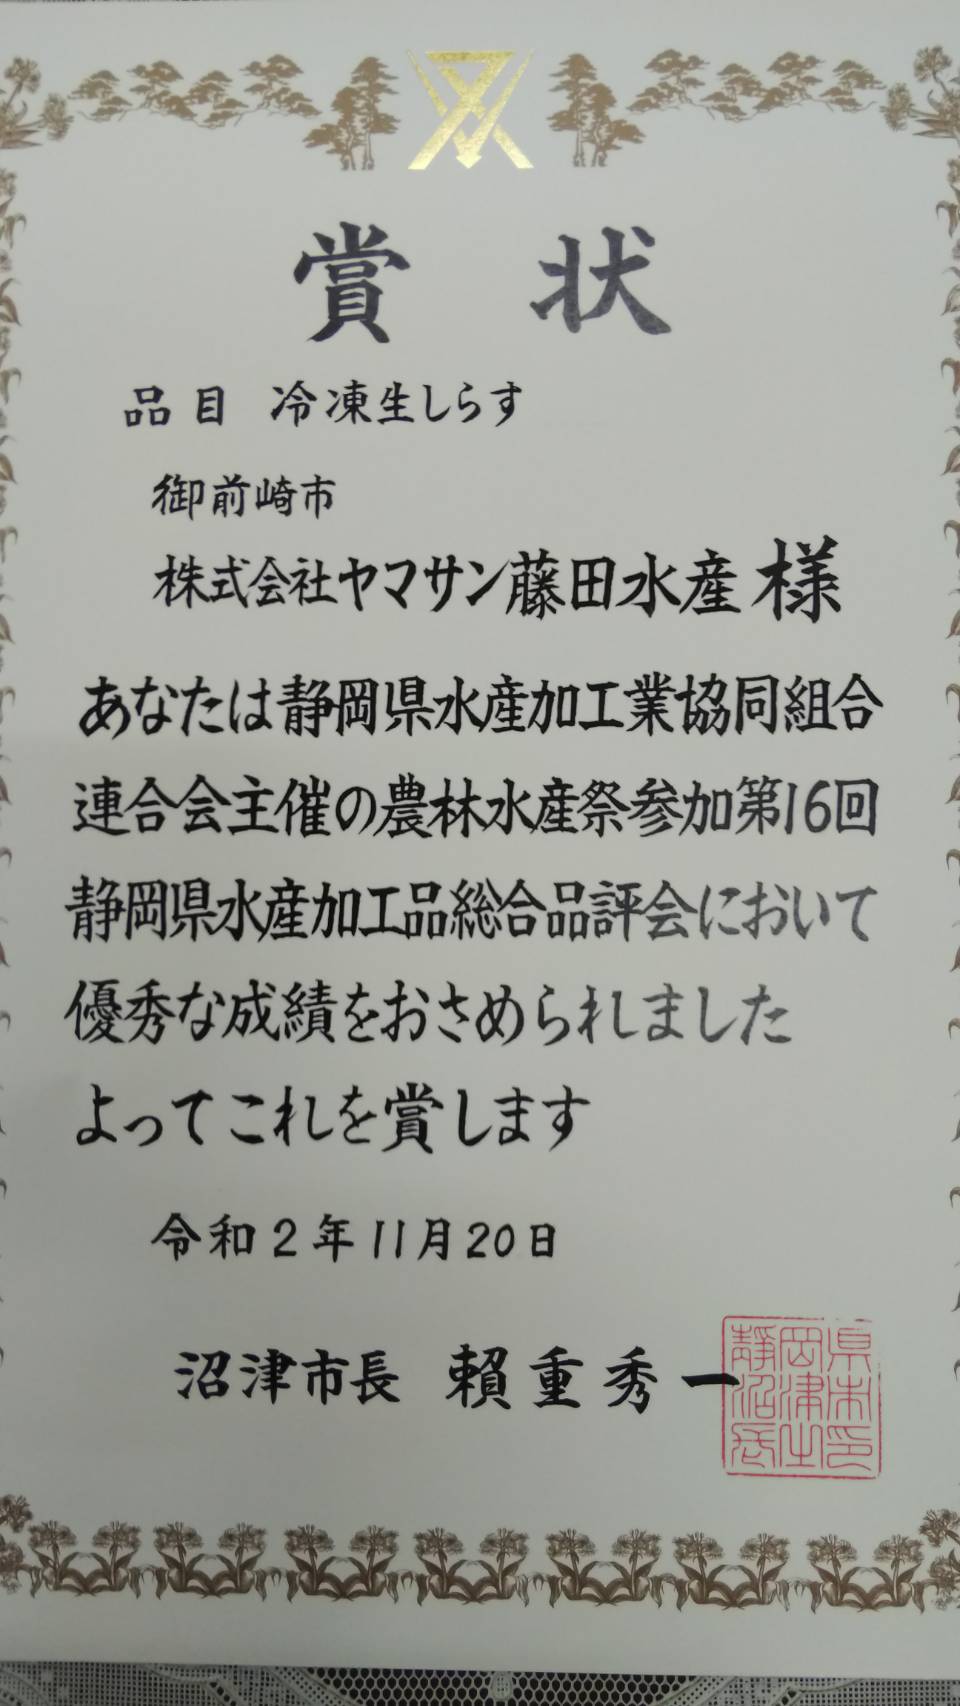 賞状
品目 冷凍生しらす
御前崎市
株式会社ヤマサン藤田水産 様
あなたは静岡県水産加工業協同組合
連合会主催の農林水産祭参加第16回
静岡県水産加工品総合品評会において
優秀な成績をおさめられました
よってこれを賞します
令和2年11月20日
沼津市長 賴重秀一
静岡県
沼津市
長之印